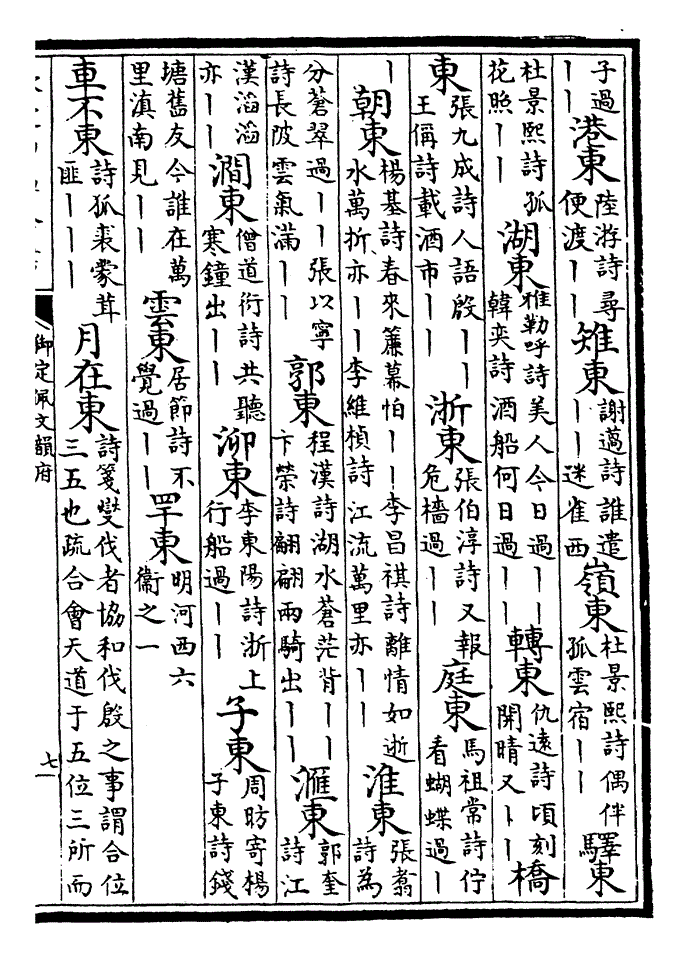 子過丨丨港東陸游詩尋便渡丨丨雉東謝薖詩誰遣丨丨迷雀西嶺東杜景熙詩偶伴孤雲宿丨丨驛東
杜景熙詩孤花照丨丨湖東雅勒呼詩美人今日過丨丨韓奕詩酒船何日過丨丨轉東仇遠詩頃刻開晴又丨丨橋
東張九成詩人語殷丨丨王偁詩載酒市丨丨浙東張伯淳詩又報危檣過丨丨庭東馬祖常詩佇看蝴蝶過丨
丨朝東楊基詩春來簾幕怕丨丨李昌祺詩離情如逝水萬折亦丨丨李維楨詩江流萬里亦丨丨淮東張翥詩為
分蒼翠過丨丨張以寧詩長陂雲氣滿丨丨郭東程漢詩湖水蒼茫背丨丨卞榮詩翩翩兩騎出丨丨滙東郭奎詩江
漢滔滔亦丨丨澗東僧道衍詩共聽寒鐘出丨丨泖東李東陽詩浙上行船過丨丨子東周昉寄楊子東詩錢
塘舊友今誰在萬里滇南見丨丨雲東居節詩不覺過丨丨罕東明河西六衞之一
車不東詩狐裘蒙茸匪丨丨丨月在東詩箋爕伐者協和伐殷之事謂合位三五也疏合會天道于五位三所而
御定佩文韻府
七一